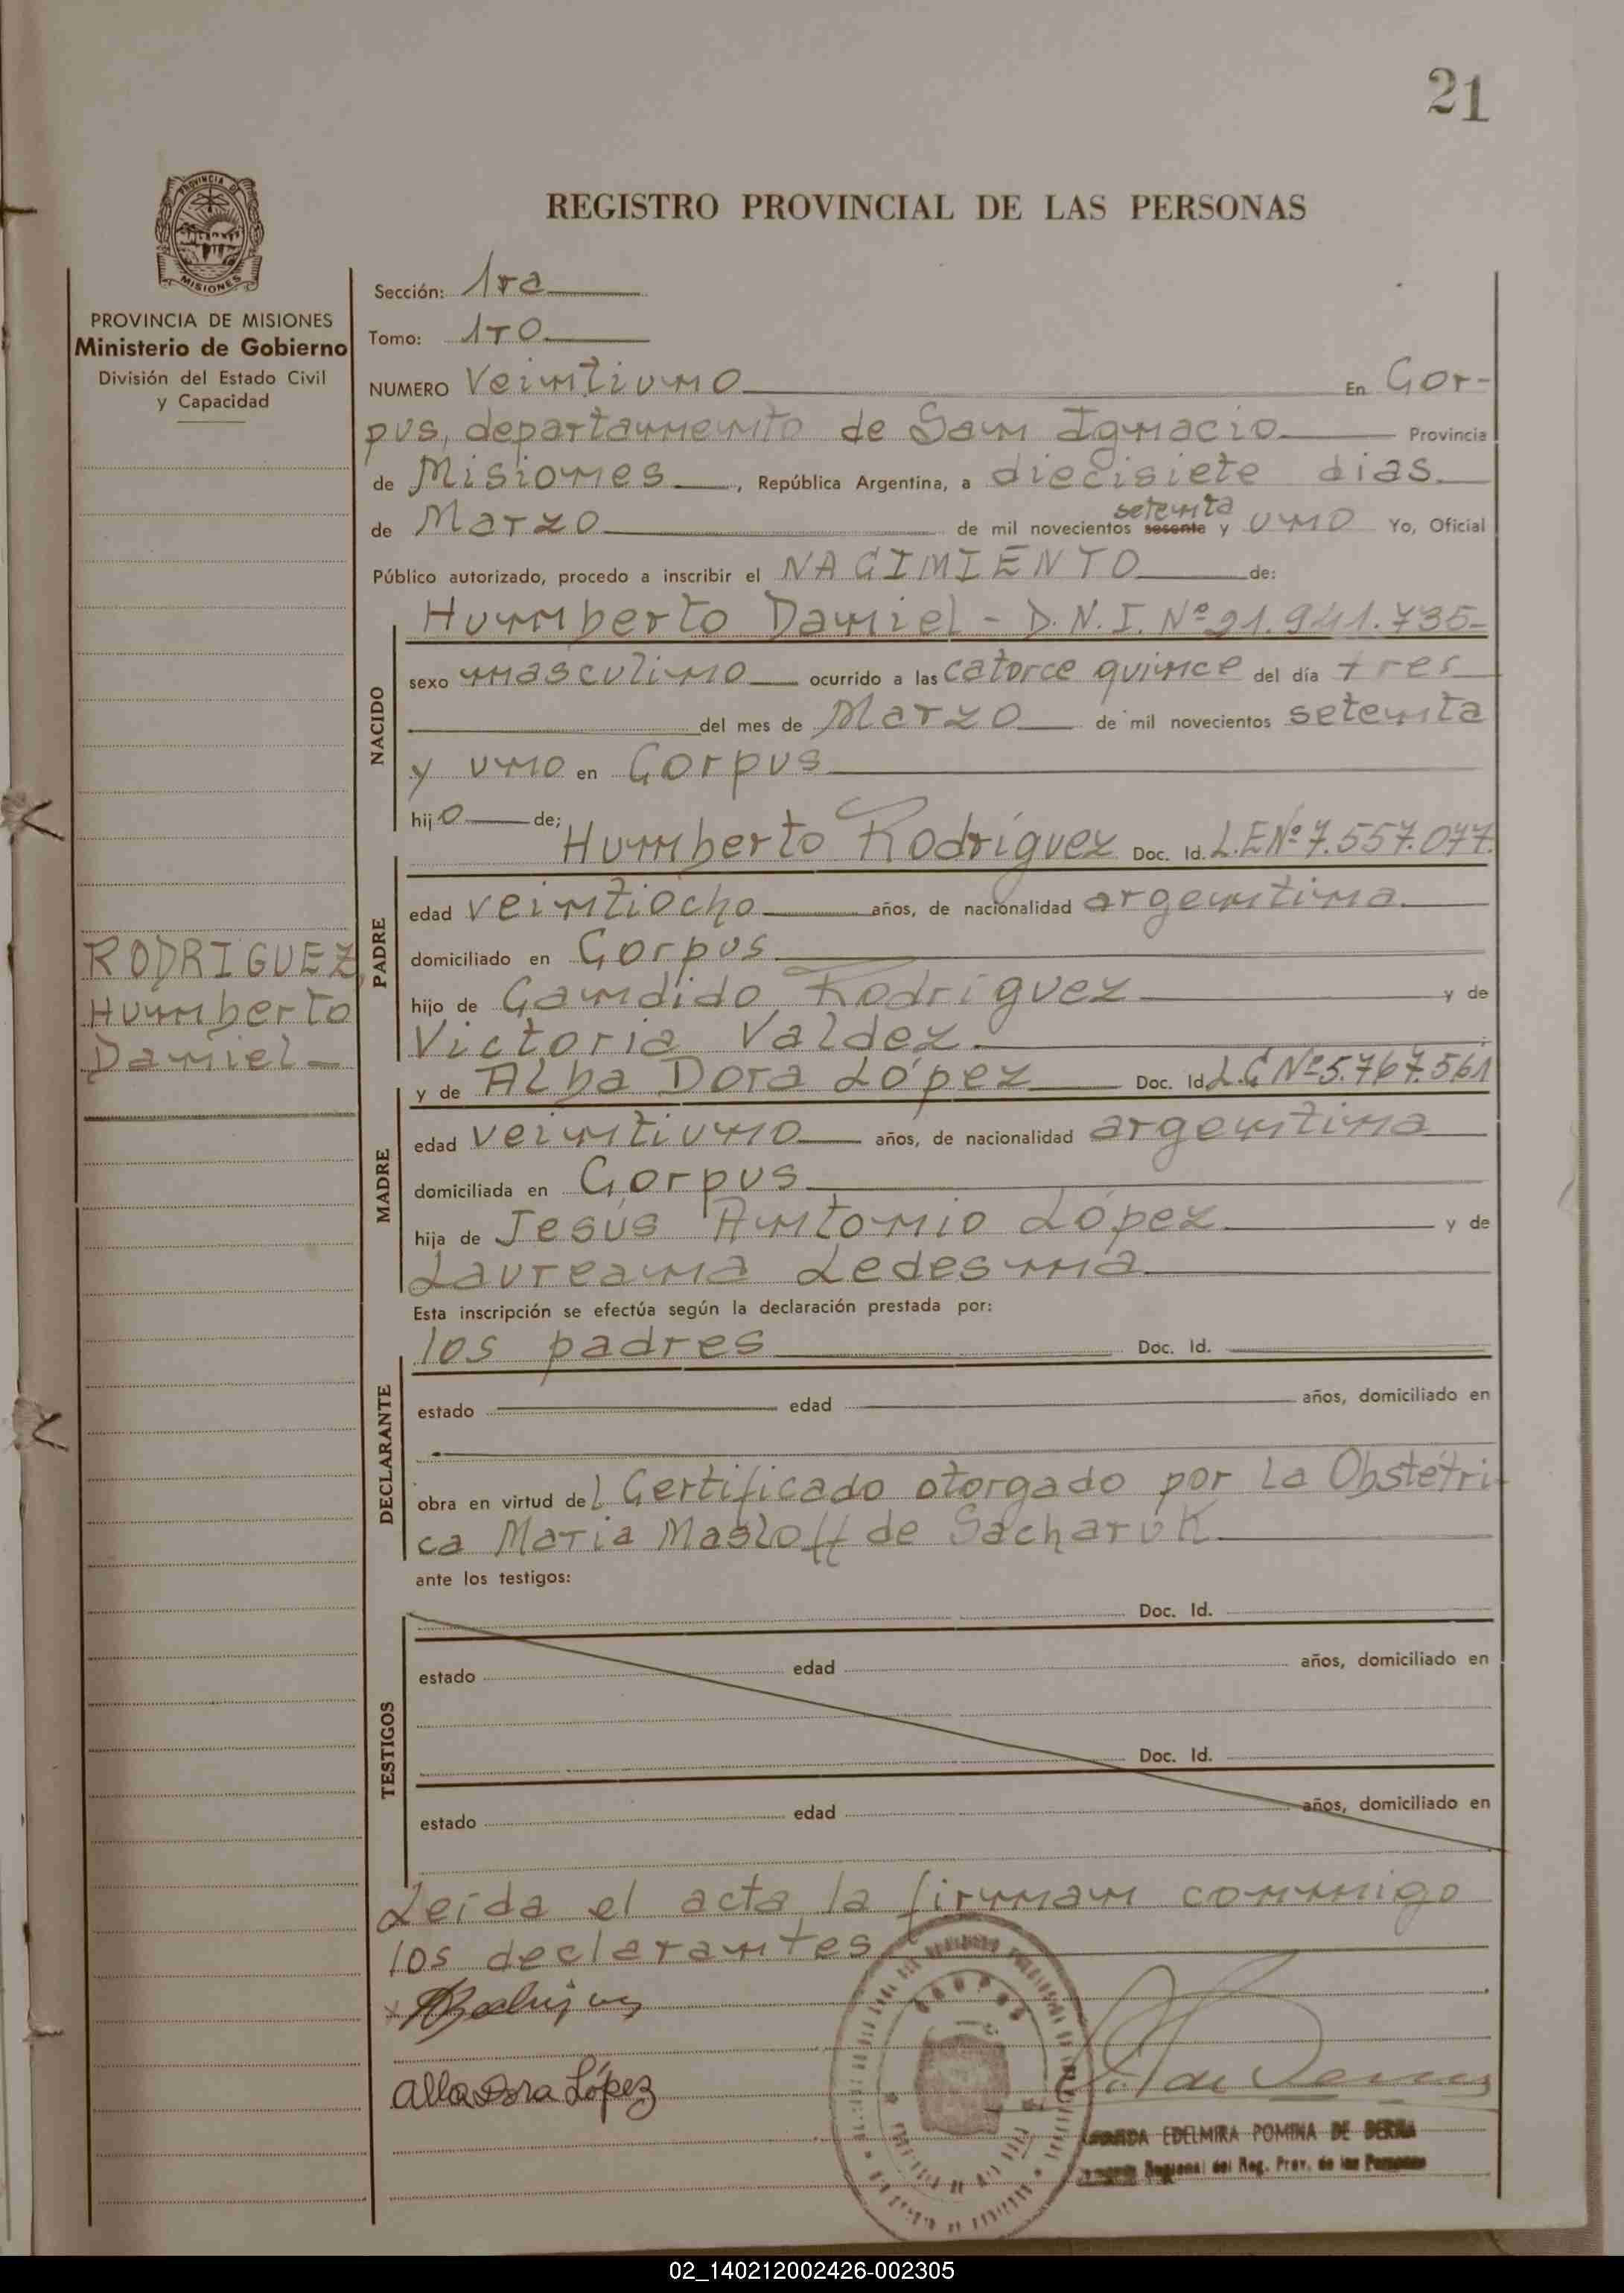 21
PROVINCIA DE
MISIONES
PROVINCIA DE MISIONES
Ministerio de Gobierno
División del Estado Civil
y Capacidad
RODRIGUEZ,
Humberto
Daniel
REGISTRO PROVINCIAL DE LAS PERSONAS
Sección: 1ra
Tomo: 1ro
NUMERO Veintiuno En Cor-
pus, departamento de San Ignacio Provincia
de Misiones, República Argentina, a diecisiete dias
setenta
de Marzo de mil novecientos sesenta y uno Yo, Oficial
Público autorizado, procedo a inscribir el NACIMIENTO de:
Humberto Daniel - D.N.I. Nº 21.941.735-
NACIDO
sexo masculino ocurrido a las catorce quince del día tres
del mes de Marzo de mil novecientos setenta
y uno en Corpus
hijo de;
Humberto Rodríguez Doc. Id. L.E Nº 7.557.077.
PADRE
edad veintiocho años, de nacionalidad argentina
domiciliado en Corpus
hijo de Candido Rodríguez y de
Victoria Valdez;
y de Alba Dora López Doc. Id. L.C Nº 5.767.561
MADRE
edad veintiuno años, de nacionalidad argentina
domiciliada en Corpus
hija de Jesús Antonio López y de
Laureana Ledesma
Esta inscripción se efectúa según la declaración prestada por:
los padres Doc. Id.
DECLARANTE
estado edad años, domiciliado en
obra en virtud del Certificado otorgado por la Obstétri-
ca Maria Masloff de Sacharuk
ante los testigos:
Doc. Id.
TESTIGOS
estado edad años, domiciliado en
Doc. Id.
estado edad años, domiciliado en
Leída el acta la firman conmigo
los declarantes
Alba Dora López
EDELMIRA POMINA DE BERRA
Regional del Reg. Prov. de las Personas
02_140212002426-002305